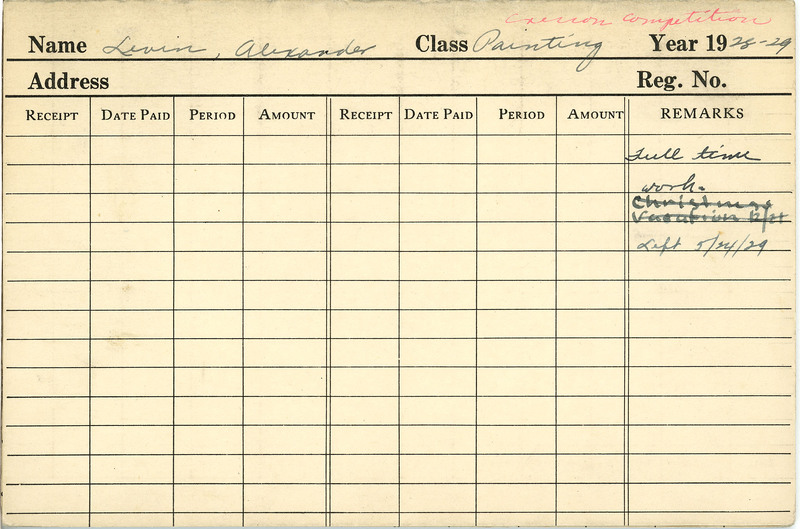 Cresson Competition
Name Levin, Alexander Class Painting Year 1928-29
Address Reg. No.
RECEIPT DATE PAID PERIOD AMOUNT RECEIPT DATE PAID PERIOD AMOUNT REMARKS
Full time
work.
Christmas
Vacation
Left 5/24/29